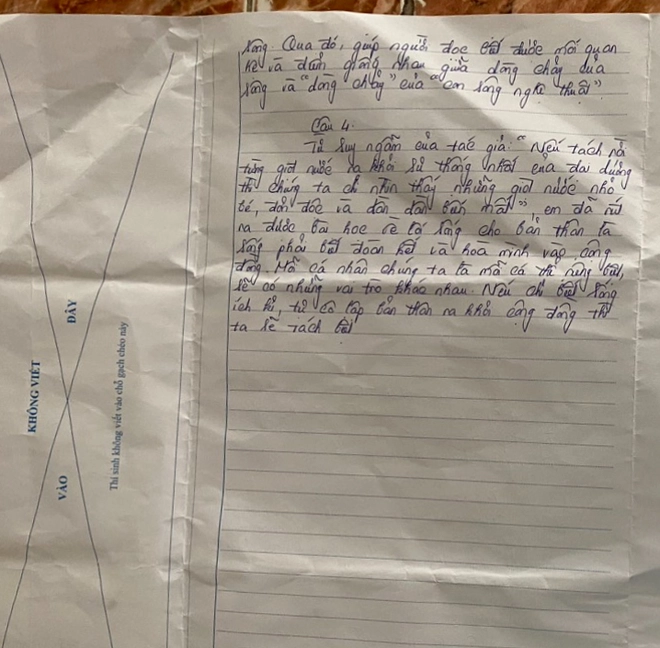 sông. Qua đó, giúp người đọc biết được mối quan
hệ và định giống nhau giữa dòng chảy của
sông và "dòng chảy" của "con sông nghệ thuật"
Câu 4:
Từ suy ngẫm của tác giả: "Nếu tách rời
từng giọt nước ra khỏi sự thống nhất của đại dương
thì chúng ta chỉ nhìn thấy những giọt nước nhỏ
bé, đơn độc và dần dần biến mất" em đã rút
ra được bài học về lẽ sống cho bản thân là
sống phải biết đoàn kết và hoà mình vào cộng
đồng. Mỗi cá nhân chúng ta là một cá thể riêng biệt,
sẽ có những vai trò khác nhau. Nếu chỉ biết sống
ích kỉ, tự cô lập bản thân ra khỏi cộng đồng thì
ta sẽ tách biệt
KHÔNG VIẾT
VÀO
ĐÂY
Thí sinh không viết vào chỗ gạch chéo này